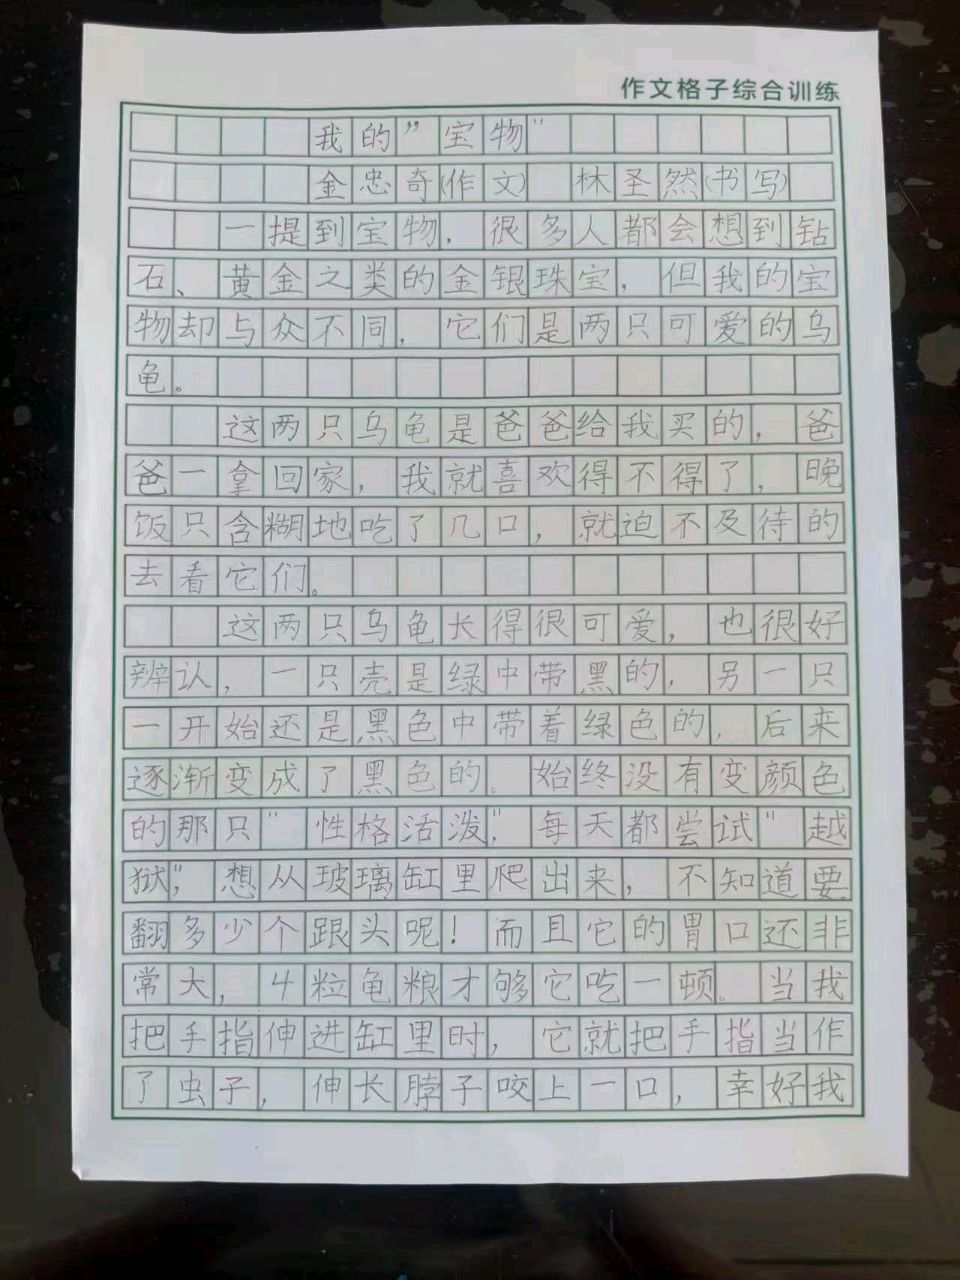 作文格子综合训练
我的”宝物"
金忠奇(作文) 林圣然(书写)
一提到宝物，很多人都会想到钻
石、黄金之类的金银珠宝，但我的宝
物却与众不同，它们是两只可爱的乌
龟。
这两只乌龟是爸爸给我买的，爸
爸一拿回家，我就喜欢得不得了，晚
饭只含糊地吃了几口，就迫不及待的
去看它们。
这两只乌龟长得很可爱，也很好
辨认，一只壳是绿中带黑的，另一只
一开始还是黑色中带着绿色的，后来
逐渐变成了黑色的。始终没有变颜色
的那只"性格活泼"，每天都尝试"越
狱"，想从玻璃缸里爬出来，不知道要
翻多少个跟头呢！而且它的胃口还非
常大，4粒龟粮才够它吃一顿。当我
把手指伸进缸里时，它就把手指当作
了虫子，伸长脖子咬上一口，幸好我